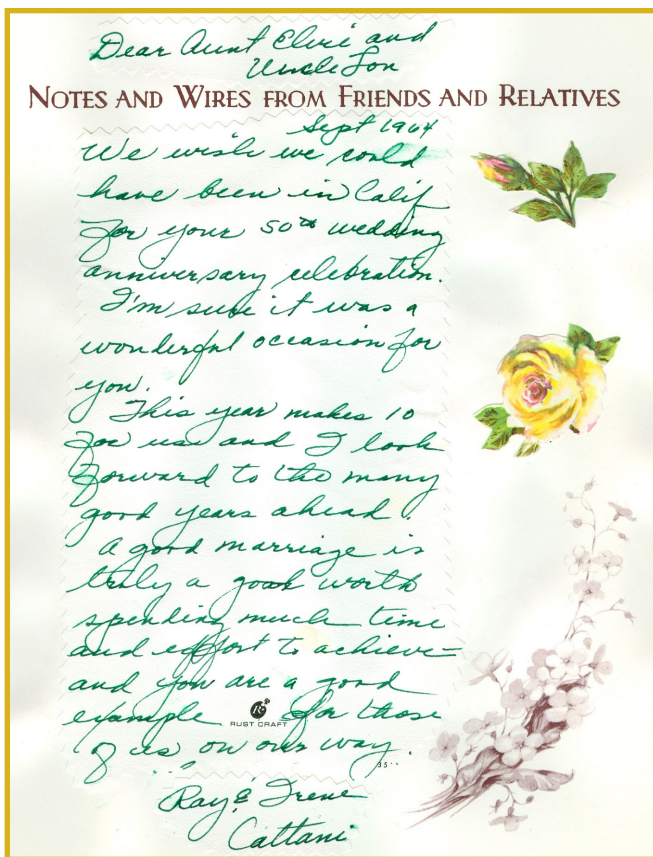 Dear Aunt Elvi and
Uncle Lon
NOTES AND WIRES FROM FRIENDS AND RELATIVES
Sept 1964
We wish we could
have been in Calif
for your 50th wedding
anniversary celebration.
I'm sure it was a
wonderful occasion for
you.
This year makes 10
for us and I look
forward to the many
good years ahead.
A good marriage is
truly a goal worth
spending much time
and effort to achieve –
and you are a good
example for those
RUST CRAFT
of us on our way.
35
Ray & Irene
Cattani